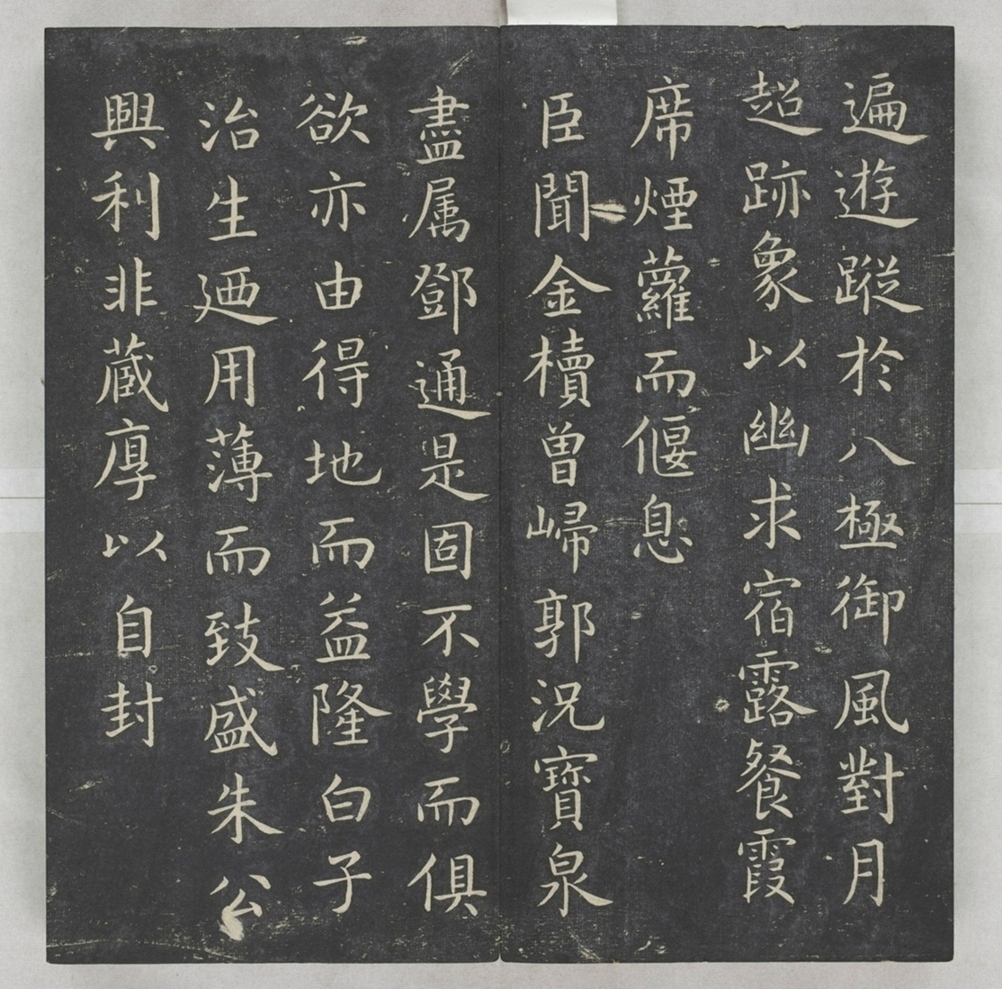 遍遊蹤於八極御風對月
超跡象以幽求宿露餐霞
席煙蘿而偃息
臣聞金櫝曾歸郭況寶泉
盡属鄧通是固不學而俱
欲亦由得地而益隆白子
治生廼用薄而致盛朱公
興利非蔵厚以自封